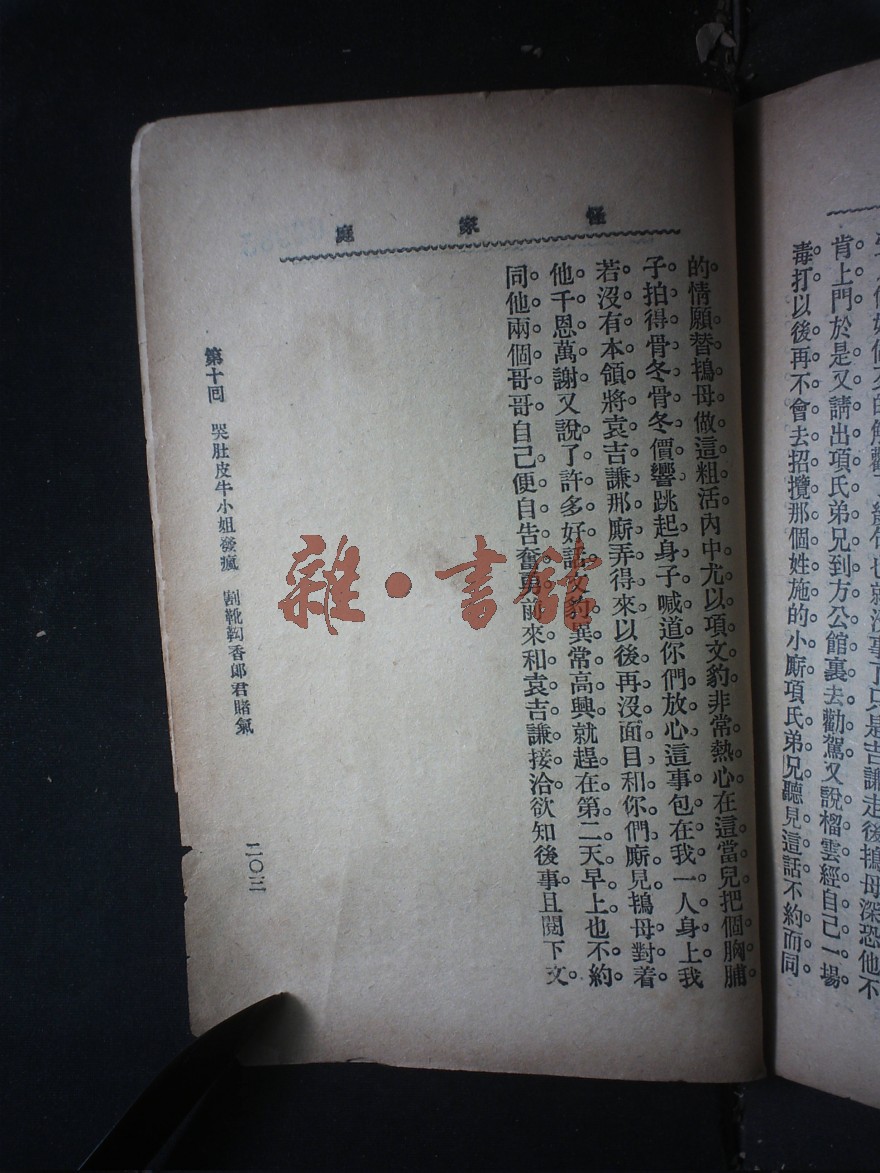 的解勸了幾句也就沒事了只是吉謙走後鴇母深恐他不
肯上門於是又請出項氏弟兄到方公館裏去勸駕又說榴雲經自己一場
毒打以後再不會去招攬那個姓施的小廝項氏弟兄聽見這話不約而同
怪家庭
的情願替鴇母做這粗活內中尤以項文豹非常熱心在這當兒把個胸脯
子拍得骨冬骨冬價響跳起身子喊道你們放心這事包在我一人身上我
若沒有本領將袁吉謙那廝弄得來以後再沒面目和你們廝見鴇母對着
他千恩萬謝又說了許多好話文豹異常高興就趕在第二天早上也不約
同他兩個哥哥自己便自告奮勇前來和袁吉謙接洽欲知後事且閱下文
第十回 哭肚皮牛小姐發瘋 割靴靿香郎君賭氣
二〇三
雜·書館